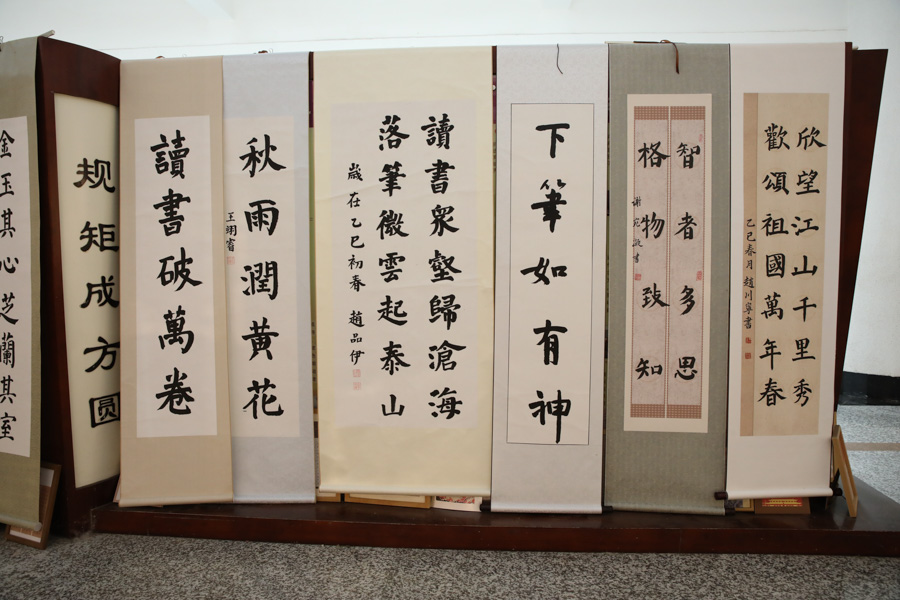 金玉其心
芝蘭其室
规矩成方圆
讀書破萬卷
秋雨潤黄花
王翊睿
讀書眾壑歸滄海
落筆微雲起泰山
歲在乙巳初春 趙品伊
下筆如有神
智者多思
格物致知
欣望江山千里秀
歡頌祖國萬年春
乙巳春月 趙川寧書